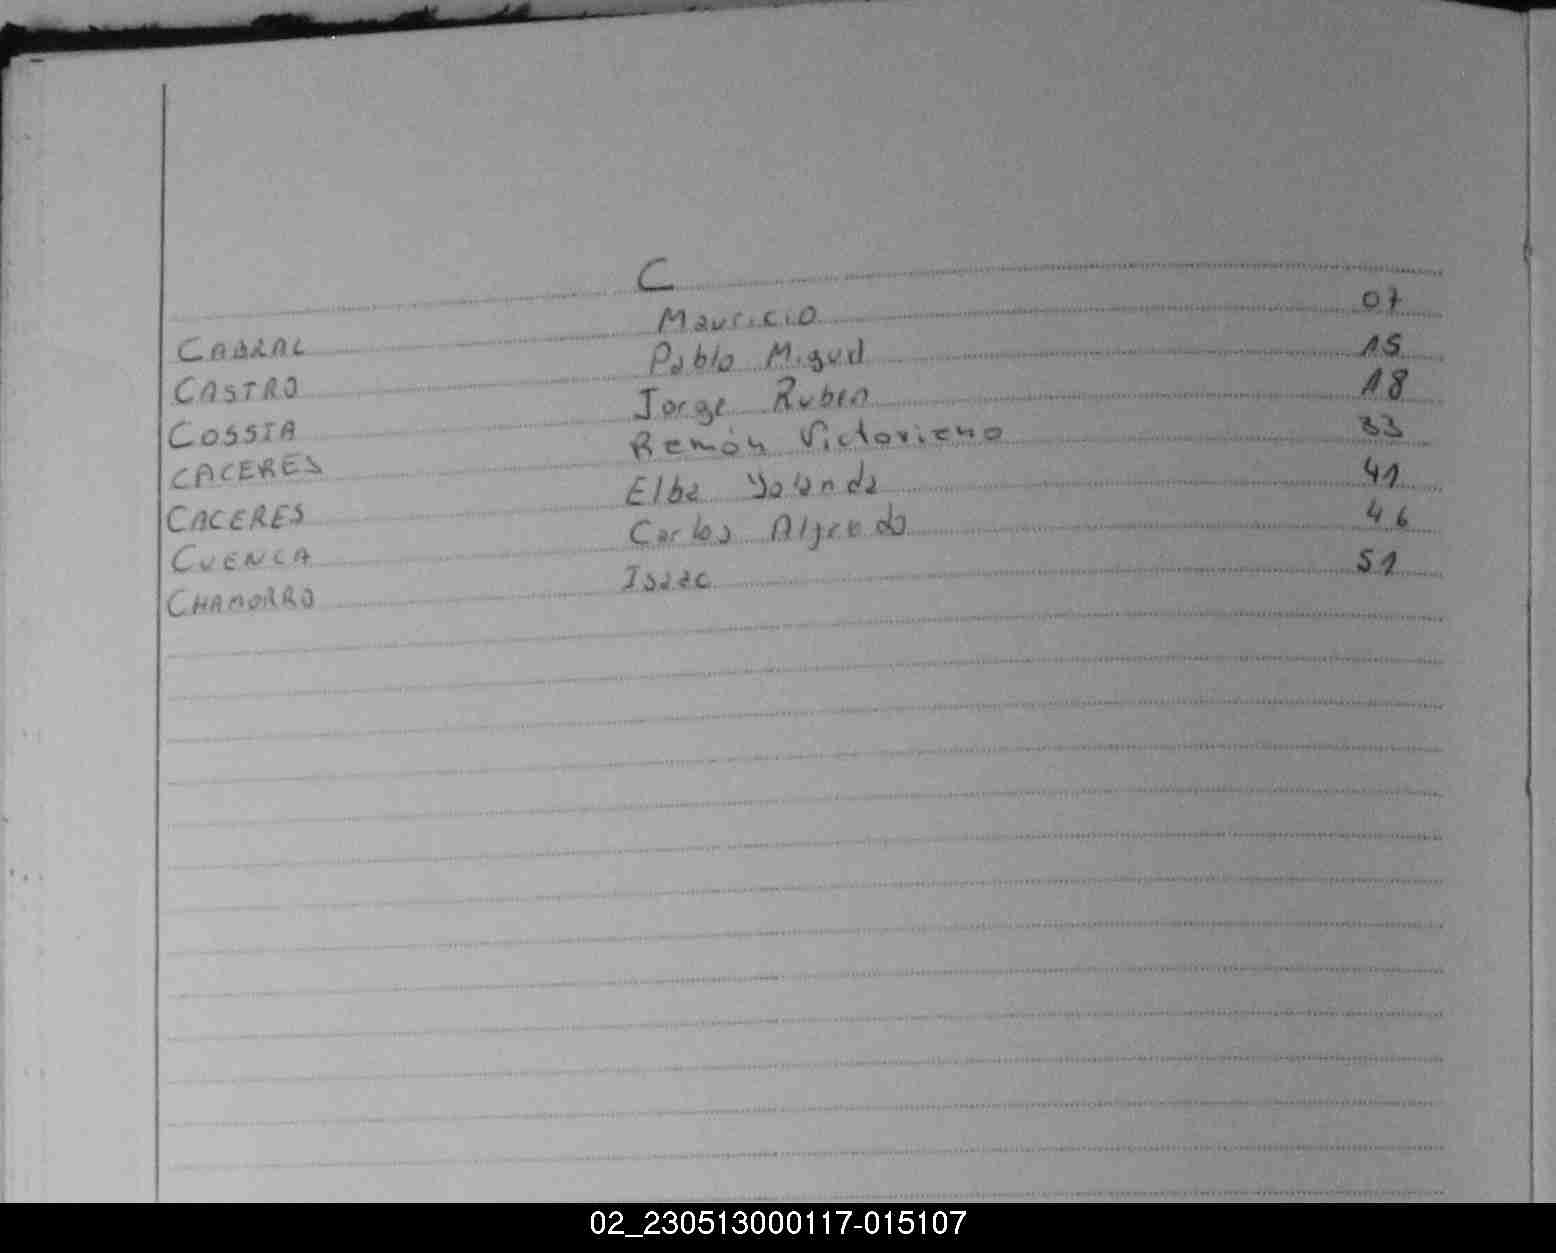 C
CABRAL Mauricio 07
CASTRO Pablo Miguel 15
COSSIA Jorge Ruben 18
CACERES Ramón Victoriano 33
CACERES Elba Yolanda 41
CUENCA Carlos Alfredo 46
CHAMORRO Isaac 51
02_230513000117-015107